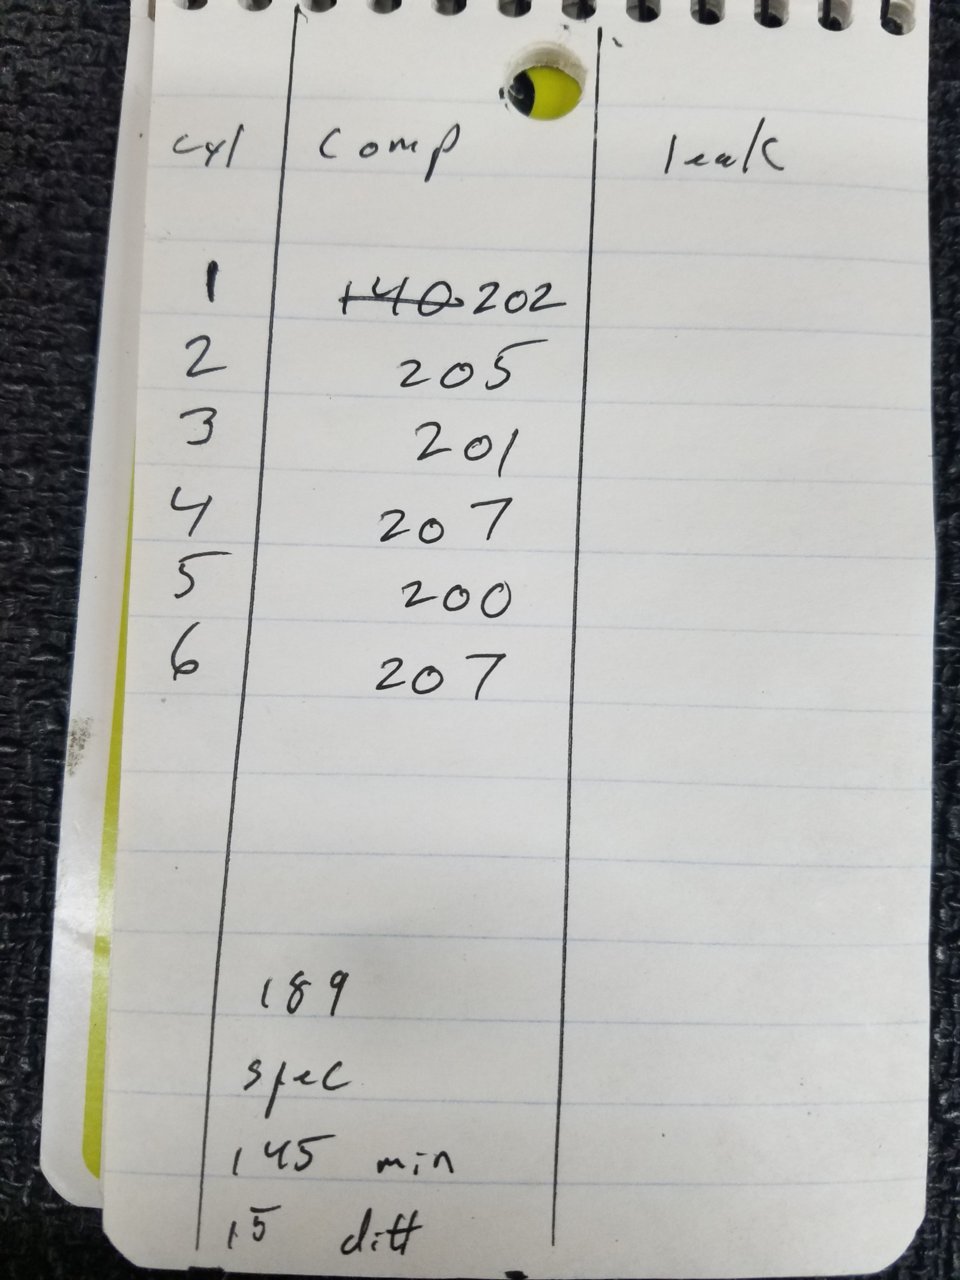 cyl comp leak
1 140 202
2 205
3 201
4 207
5 200
6 207
189
spec
145 min
15 diff